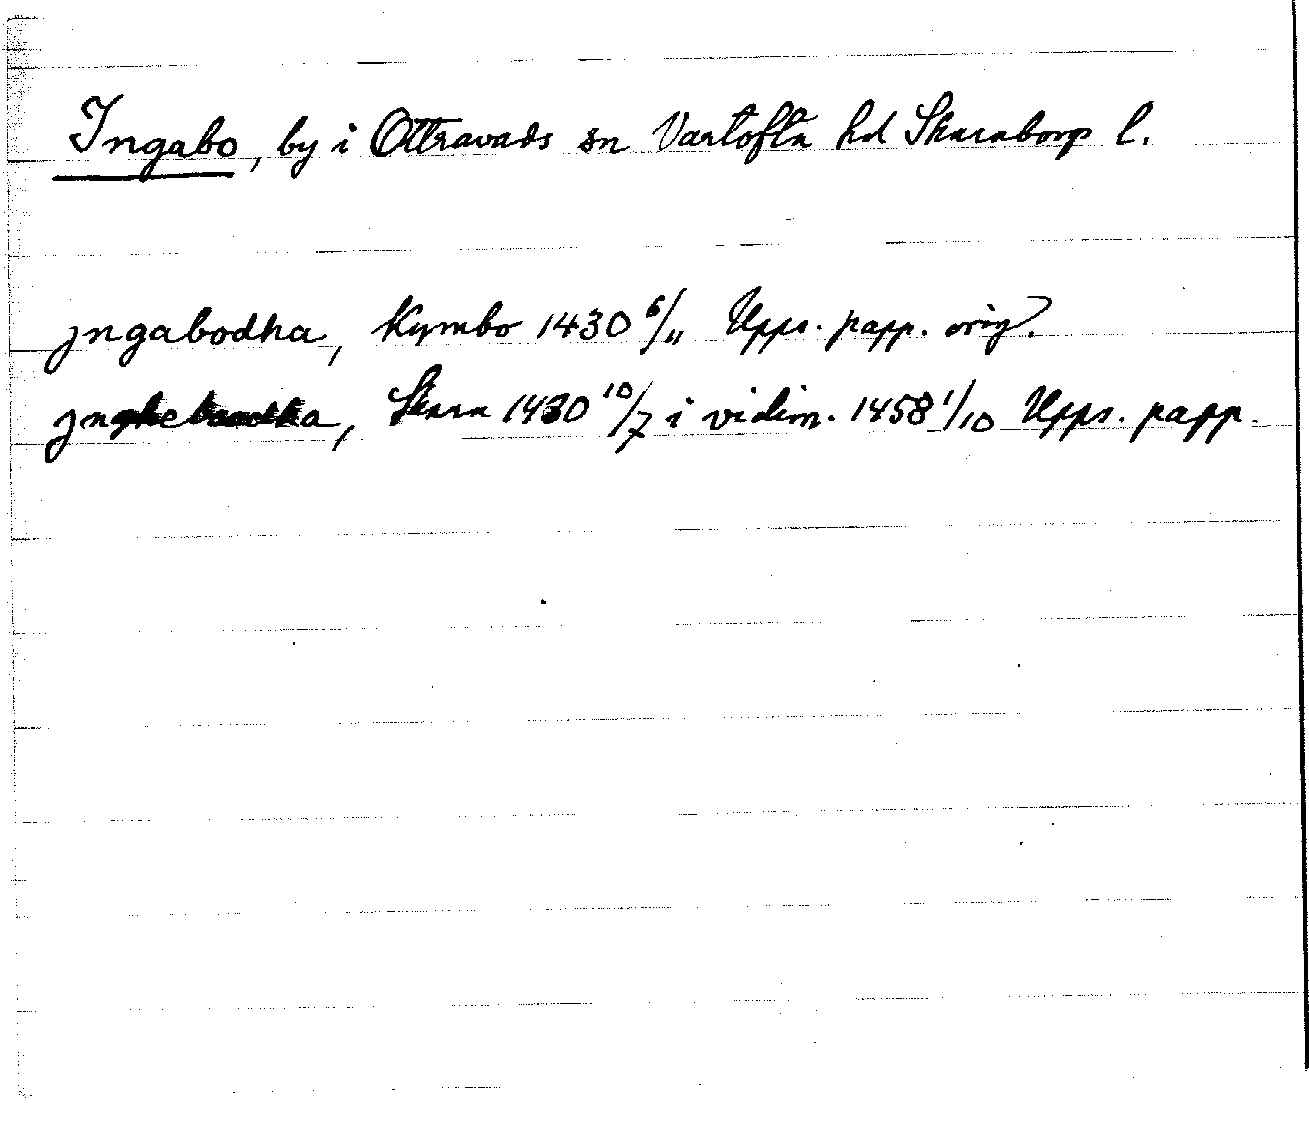 Ingabo, by i Ottravads sn Vartofta hd Skaraborgs l.
jngabodha, Kymbo 1430 6/11 Upps. papp. orig.
Skara 1430 10/7 i vidim. 1458 1/10 Upps. papp.